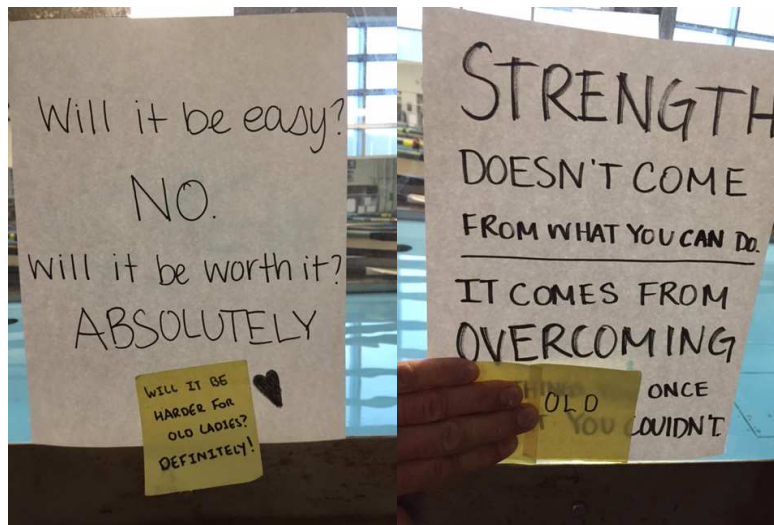 Will it be easy?
NO.
Will it be worth it?
ABSOLUTELY
WILL IT BE
HARDER FOR
OLD LADIES?
DEFINITELY!
STRENGTH
DOESN'T COME
FROM WHAT YOU CAN DO.
IT COMES FROM
OVERCOMING
THINGS ONCE
OLD
YOU COUIDN'T